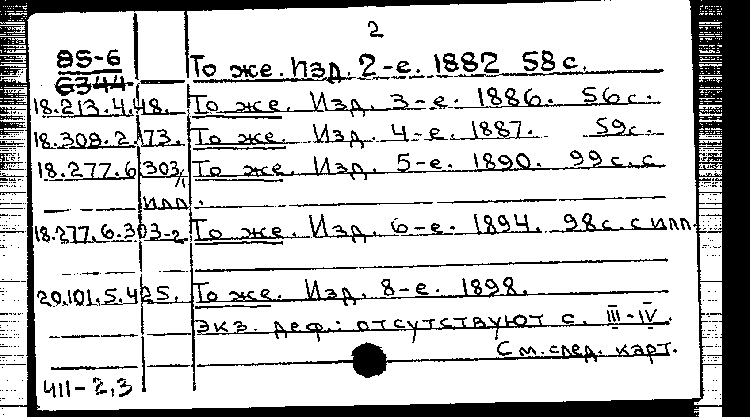 2
85-6
6344 То же. Изд. 2-е. 1882 58 с.
18.213.4.48. То же. Изд. 3-е. 1886. 56 с.
18.309.2.173. То же. Изд. 4-е. 1887. 59 с.
18.277.6.303/1 То же. Изд. 5-е. 1890. 99 с. с
илл.
18.277.6.303-2 То же. Изд. 6-е. 1894. 98 с. с илл.
20.101.5.425. То же. Изд. 8-е. 1898.
экз. деф.: отсутствуют с. III-IV.
См. след. карт.
411-2,3